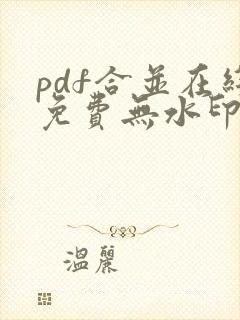 pdf合並在
免費無水印
溫麗